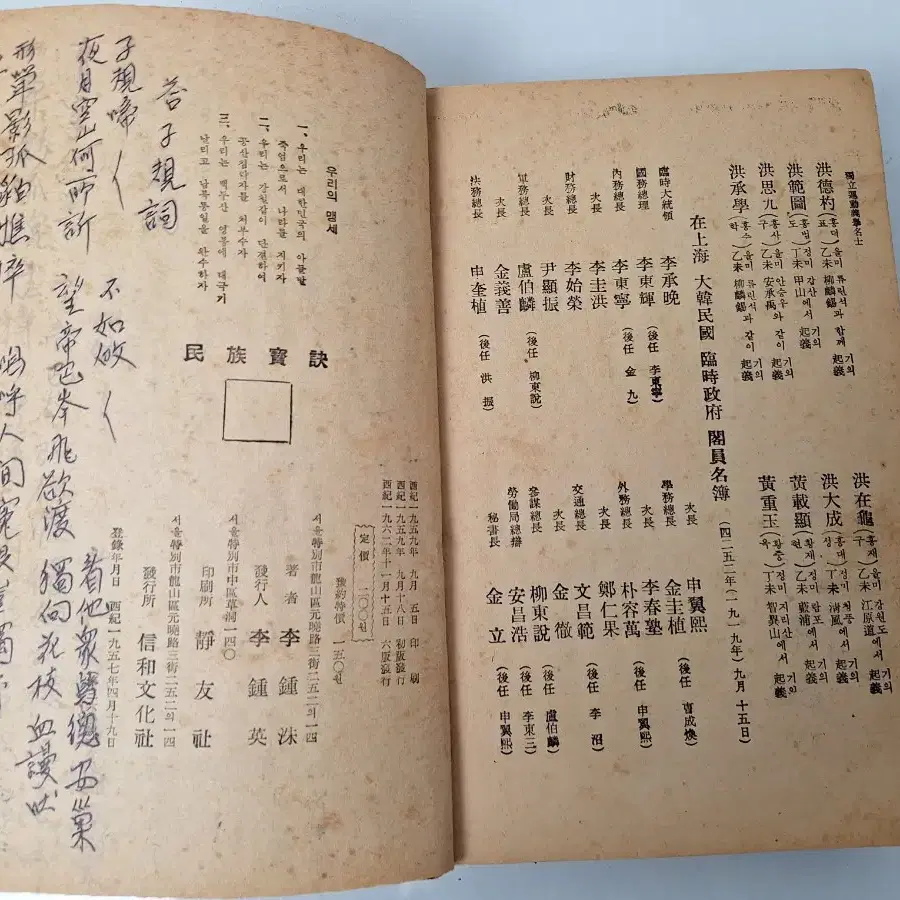 獨立運動義擧名士
洪德杓(홍덕표) 을미乙未 류린석柳麟錫과 함께 기의起義
洪範圖(홍범도) 정미丁未 갑산甲山에서 기의起義
洪思九(홍사구) 을미乙未 안승우安承禹와 같이 기의起義
洪承學(홍승학) 을미乙未 류린석柳麟錫과 같이 기의起義
洪在龜(홍재구) 을미乙未 강원도江原道에서 기의起義
洪大成(홍대성) 정미丁未 청풍淸風에서 기의起義
黃載顯(황재현) 乙未
黃重玉(황중옥) 정미丁未 지리산智異山에서 기의起義
在上海 大韓民國 臨時政府 閣員名簿 (四二五二年(一九一九年)九月十五日)
臨時大統領 李承晚
國務總理 李東輝 (後任 李東寧)
內務總長 李東寧 (後任 金九)
次長 李圭洪
財務總長 李始榮
次長 尹顯振
軍務總長 盧伯麟 (後任 柳東說)
次長 金羲善
法務總長 申奎植 (後任 洪振)
次長 申翼熙
學務總長 金圭植 (後任 曺成煥)
次長 李春塾
外務總長 朴容萬 (後任 申翼熙)
次長 鄭仁果
交通總長 文昌範 (後任 李沼)
次長 金徹
參謀總長 柳東說 (後任 盧伯麟)
勞働局總辦 安昌浩 (後任 李東三)
秘書長 金立 (後任 申翼熙)
우리의 맹세
一、우리는 대한민국의 아들딸
죽엄으로서 나라를 지키자
二、우리는 강철같이 단결하여
공산침략자를 처부수자
三、우리는 백두산 영봉에 태극기
날리고 남북통일을 완수하자
民族寶訣
西紀一九五九年 九月 五日 印刷
西紀一九五九年 九月十八日 初版發行
西紀一九六二年十一月十五日 六版發行
定價 二〇〇원
豫約特價 一五〇원
서울特別市龍山區元曉路三街二五二의一四
著者 李鍾洙
發行人 李鍾英
서울特別市中區草洞一四〇
印刷所 靜友社
서울特別市龍山區元曉路三街二五二의一四
發行所 信和文化社
登錄年月日 西紀一九五七年四月十九日
答子規詞
子規啼
不如故
夜月空山何所訴
望帝巴岑飛欲渡
看他衆鳥總安巢
獨向花枝血謾吐
形單影孤貌憔悴
嗚呼人間寃